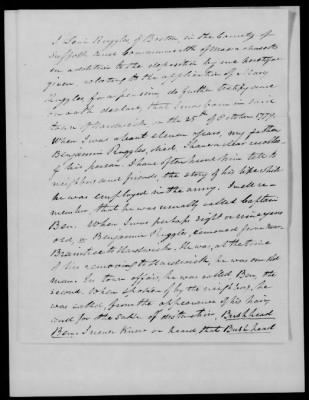 I Levi Ruggles of Boston in the County of
Suffolk and Commonwealth of Massachusetts
in addition to the deposition by me heretofore
given, relating to the application of Mary
Ruggles for a pension, do further testify and
on oath declare, that I was born in said
town of Hardwick on the 25th of October 1779.
When I was about eleven years, my father
Benjamin Ruggles, died. I have a clear recollec-
of his person. I have often heard him tell to
neighbors and friends the story of his
he was employed in the army. I well re-
member that he was usually called Captain
Ben. When I was perhaps eight or nine years
old, a Benjamin Ruggles removed from
Braintree to Hardwick. He was, at the time
of his removing to Hardwick, he was an old
man. In town affairs, he was called Ben, the
second. When spoken of by the neighbors, he
was called, from the appearance of his hair,
and for the sake of distinction, Bushhead
Ben. I never knew or heard that Bushhead